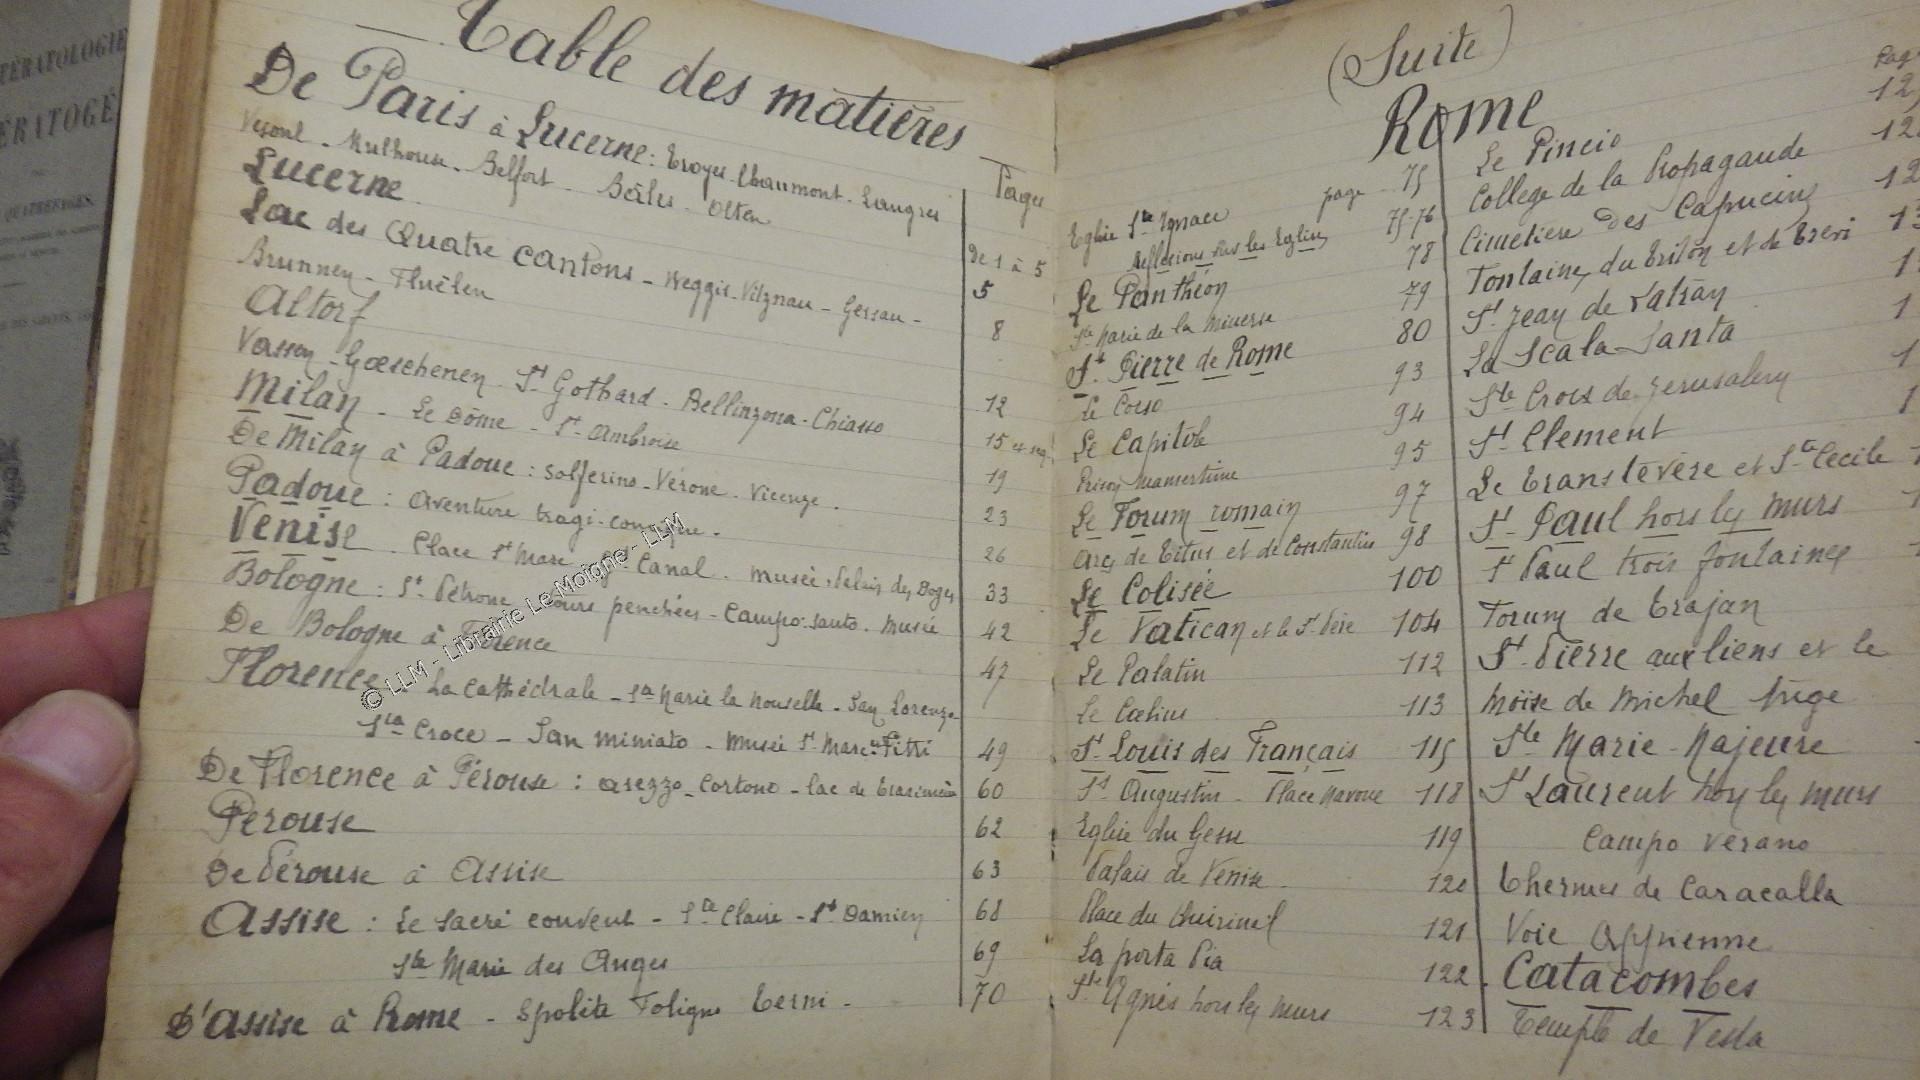 TÉRATOLOGIE
ÉRATOGÉ
QUATREFAGES
Table des matières
Pages
De Paris à Lucerne : Troyes. Chaumont. Langres
Vesoul - Mulhouse - Belfort - Bâles - Olten de 1 à 5
Lucerne. 5
Lac des Quatre cantons - Weggis. Vitznau - Gersau -
Brunnen - Fluëlen 8
Altorf
Vassen - Gœschenen. St Gothard. Bellinzona. Chiasso 12
Milan - Le Dôme - St. Ambroise 15 et seq
De Milan à Padoue : Solferino. Vérone. Vicenze. 19
Padoue : Aventure tragi-comique. 23
Venise. Place St Marc Gd Canal. Musée, Palais des Doges 26
Bologne : St Pétrone Tours penchées - Campo-Santo. Musée 33
De Bologne à Florence 42
Florence La Cathédrale - Sta Marie la Nouvelle - San Lorenzo 47
Sta Croce - San Miniato - Musée St Marc et Pitti 49
De Florence à Pérouse : Arezzo - Cortone - lac de Trasimène 60
Pérouse 62
De Pérouse à Assise 63
Assise : Le sacré couvent - Ste Claire - St Damien 68
Ste Marie des Anges 69
D'Assise à Rome - Spolète Foligno Terni - 70
(Suite)
Rome
Eglise St Ignace page 75
Réflexions sur les Eglises 75-76
Le Panthéon 78
Ste Marie de la Minerve 79
St. Pierre de Rome 80
Le Corso 93
Le Capitole 94
Prison Mamertine 95
Le Forum romain 97
Arcs de Titus et de Constantin 98
Le Colisée 100
Le Vatican et le St. Père 104
Le Palatin 112
Le Cœlius 113
St. Louis des Français 115
St Augustin - Place Navone 118
Eglise du Gesu 119
Palais de Venise 120
Place du Quirinal 121
La porta Pia 122
Ste Agnès hors les murs 123
Pag
Le Pincio
College de la Propagande
Cimetière des Capucins
Fontaines du Triton et de Trévi
St Jean de Latran
La Scala-Santa
Ste Croix de Jerusalem
St Clement
Le Translévère et Ste Cécile
St. Paul hors les murs
St Paul trois fontaines
Forum de Trajan
St. Pierre aux liens et le
Moïse de Michel Ange
Ste Marie-Majeure
St Laurent hors les murs
Campo Verano
Thermes de Caracalla
Voie Appienne
Catacombes
Temple de Vesta
© LLM - Librairie Le Moigne - LLM